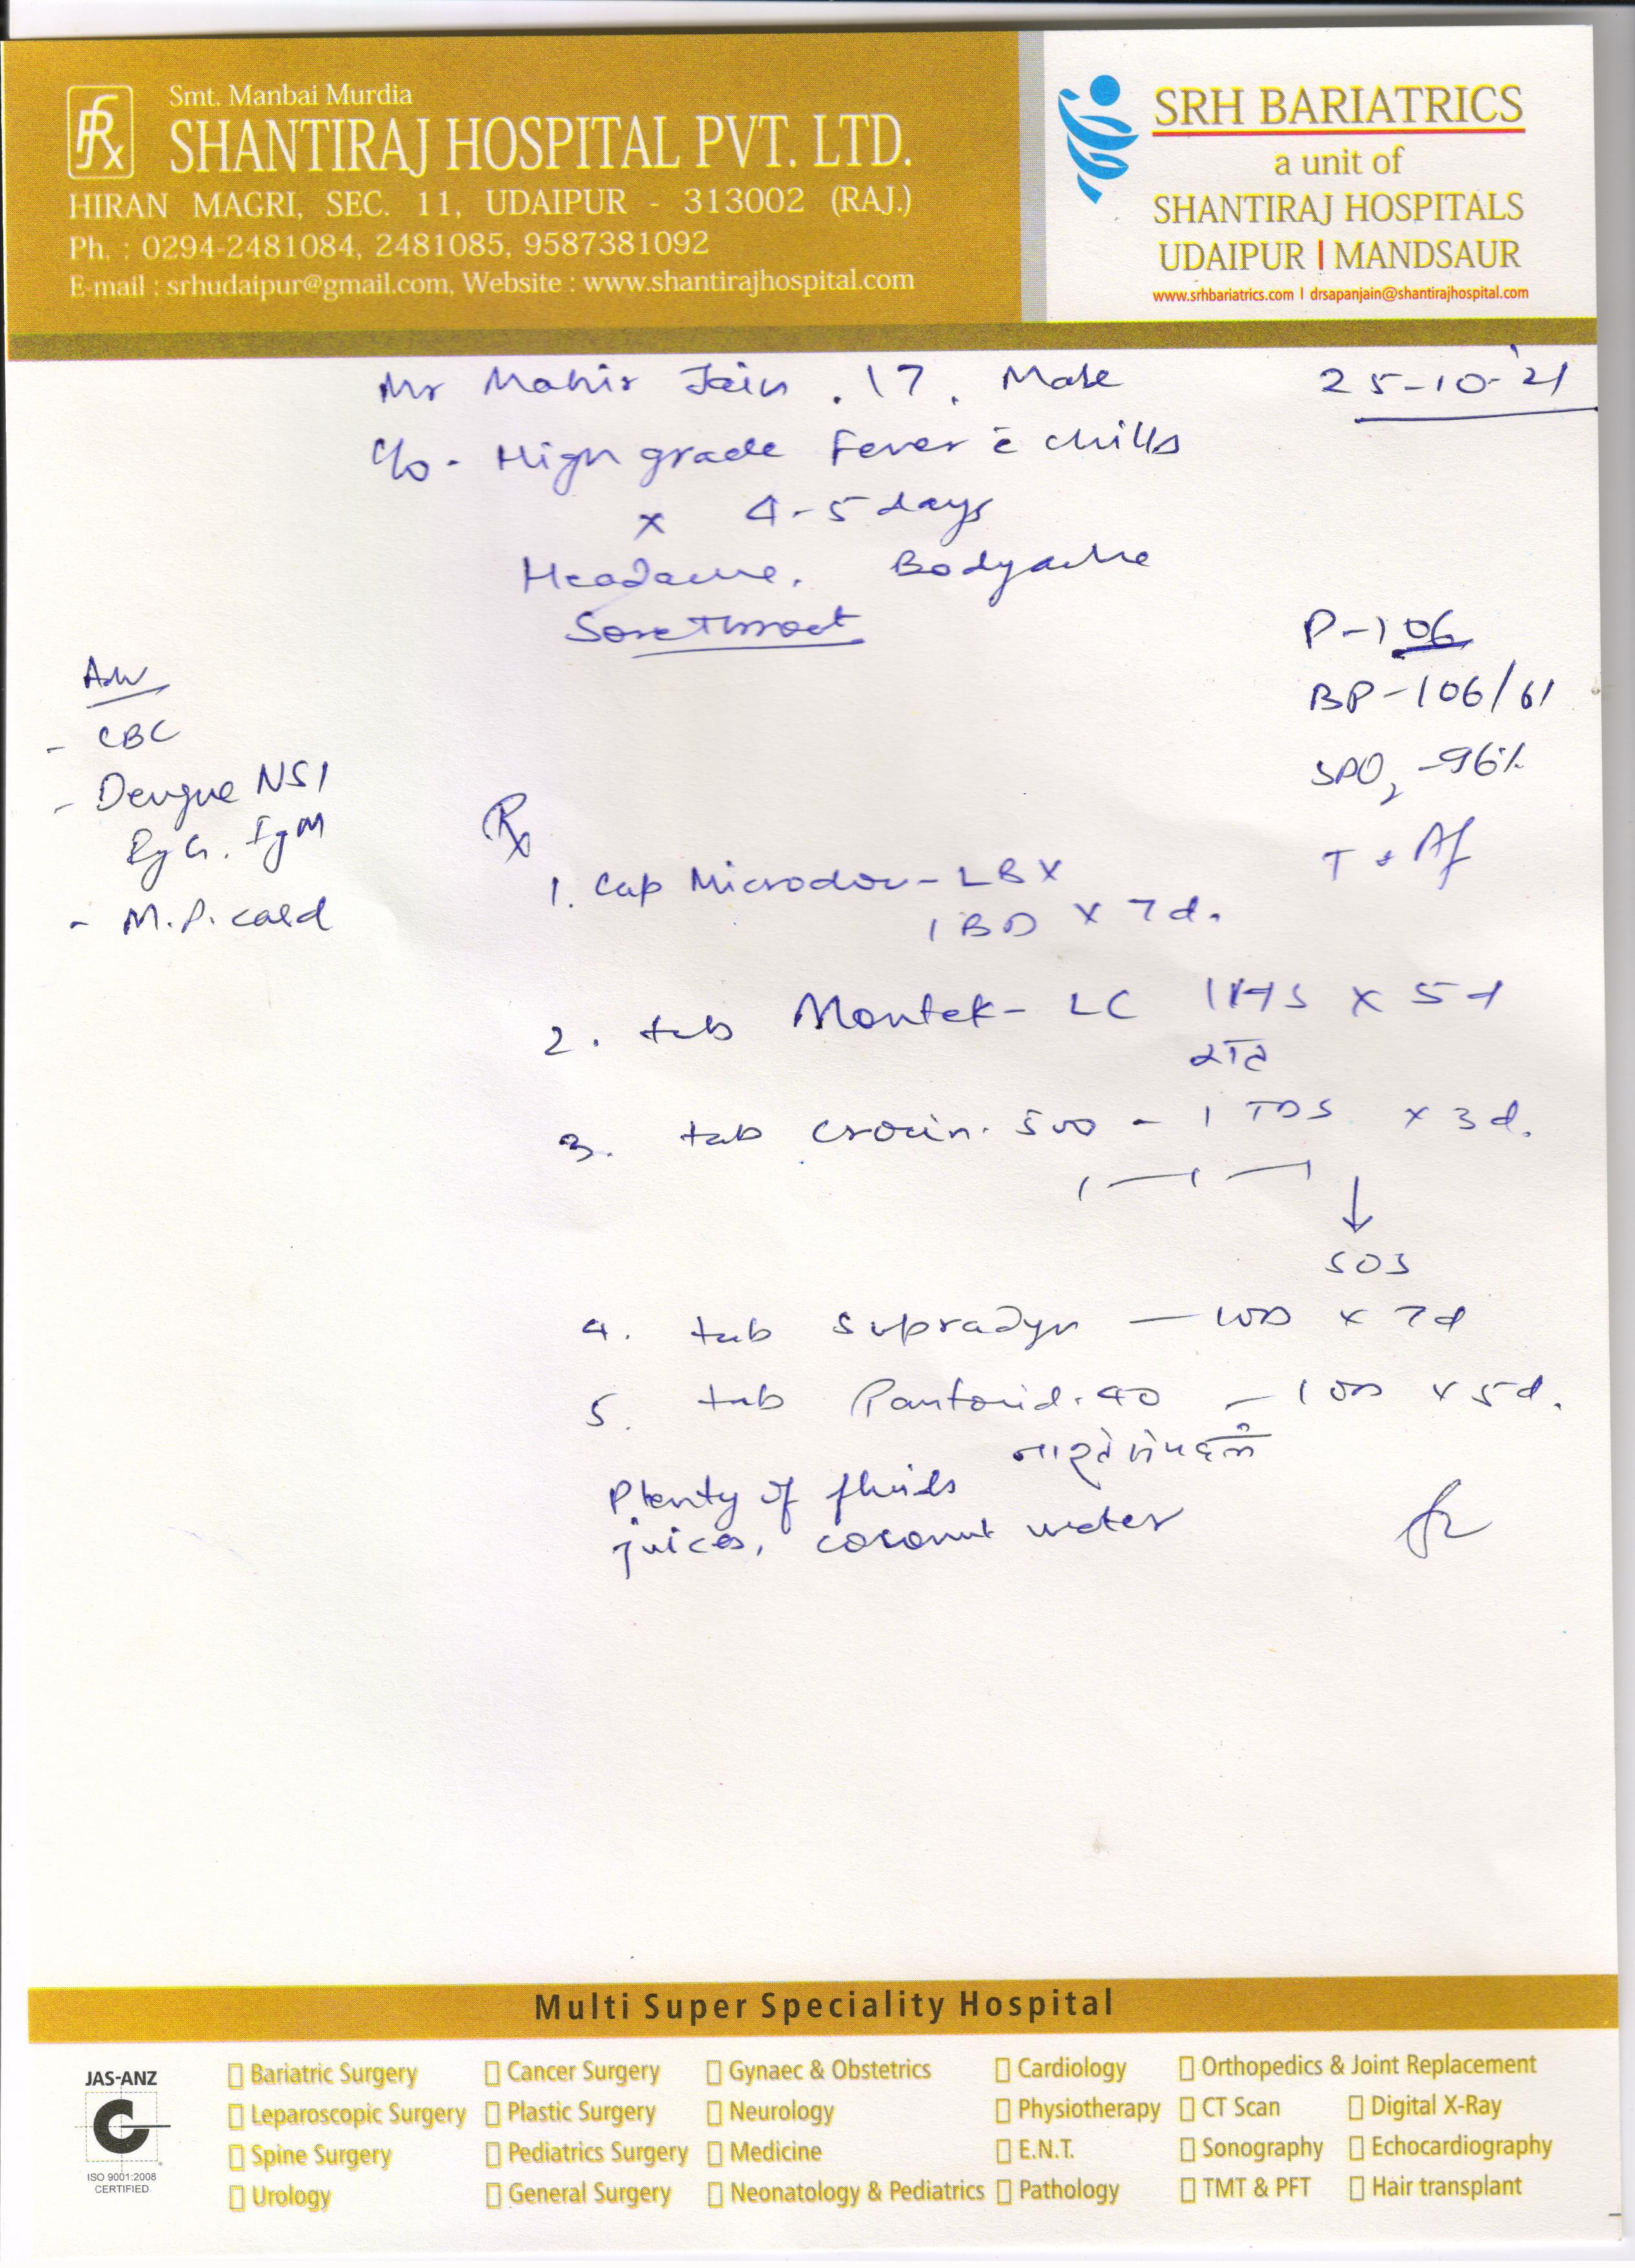 Smt. Manbai Murdia
SHANTIRAJ HOSPITAL PVT. LTD.
HIRAN MAGRI, SEC. 11, UDAIPUR - 313002 (RAJ.)
Ph. : 0294-2481084, 2481085, 9587381092
E-mail : srhudaipur@gmail.com, Website : www.shantirajhospital.com
SRH BARIATRICS
a unit of
SHANTIRAJ HOSPITALS
UDAIPUR | MANDSAUR
www.srhbariatrics.com | drsapanjain@shantirajhospital.com
Mr Mahir Jain . 17 . Male 25-10-'21
C/o - High grade Fever c̄ chills
x 4-5 days
Headache, Bodyache
Sorethroat
P-106
BP-106/61
SPO2 -96%
T + Af
Adv
- CBC
- Dengue NS1
IgG. IgM
- M.P. card
Rx
1. Cap Microdox-LBX
1 BD x 7d.
2. tab Montek-LC 1 HS x 5d
रात
3. tab crocin. 500 - 1 TDS x 3d.
1 — 1 — 1
↓
SOS
4. tab supradyn — 1OD x 7d
5. tab Pantocid. 40 — 1 OD x 5d.
Plenty of fluids
juices, coconut water
Multi Super Speciality Hospital
JAS-ANZ
ISO 9001:2008
CERTIFIED.
Bariatric Surgery
Leparoscopic Surgery
Spine Surgery
Urology
Cancer Surgery
Plastic Surgery
Pediatrics Surgery
General Surgery
Gynaec & Obstetrics
Neurology
Medicine
Neonatology & Pediatrics
Cardiology
Physiotherapy
E.N.T.
Pathology
Orthopedics & Joint Replacement
CT Scan
Digital X-Ray
Sonography
Echocardiography
TMT & PFT
Hair transplant